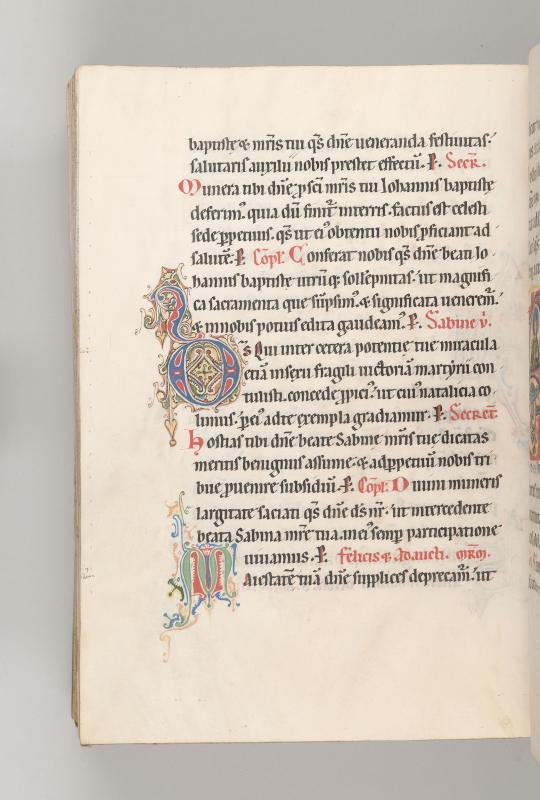 baptistę & mr̄is tui q̄s dn̄e ueneranda festiuitas.
salutaris auxilii nobis prestet effectū. P. Secr̄.
Munera tibi dn̄e ꝓ sci mr̄is tui Iohannis baptistę
deferim᷒. quia dū finiit̄ in terris. factus est celesti
sede ꝑpetuus. q̄s ut ei᷒ obtentu nobis ꝓficiant ad
salutē. P. Cōpl. Conferat nobis q̄s dn̄e beati Io
hannis baptistę utrūq; sollēpnitas. ut magnifi
ca sacramenta que sūpsim᷒. & significata ueneremr̄.
& in nobis potius edita gaudeam᷒. P. Sabine v̄.
Ds̄ Qui inter cetera potentię tuę miracula
etiā in sexu fragili uictoriā martyrii con
tulisti. concede ꝓpici᷒. ut cui᷒ natalicia co
limus. ꝑ ei᷒ ad te exempla gradiamur. P. Secret̄
Hostias tibi dn̄e beate Sabine mr̄is tue dicatas
meritis benignus assume. & ad ꝑpetuū nobis tri
bue ꝓuenire subsidiū. P. Cōpl. Diuini muneris
largitate saciati q̄s dn̄e ds̄ nr̄. ut intercedente
beata Sabina mr̄e tua. in ei᷒ semꝑ participatione
uiuamus. P. felicis & Adaucti. mr̄m.
Maiestatē tuā dn̄e supplices deprecam᷒. ut